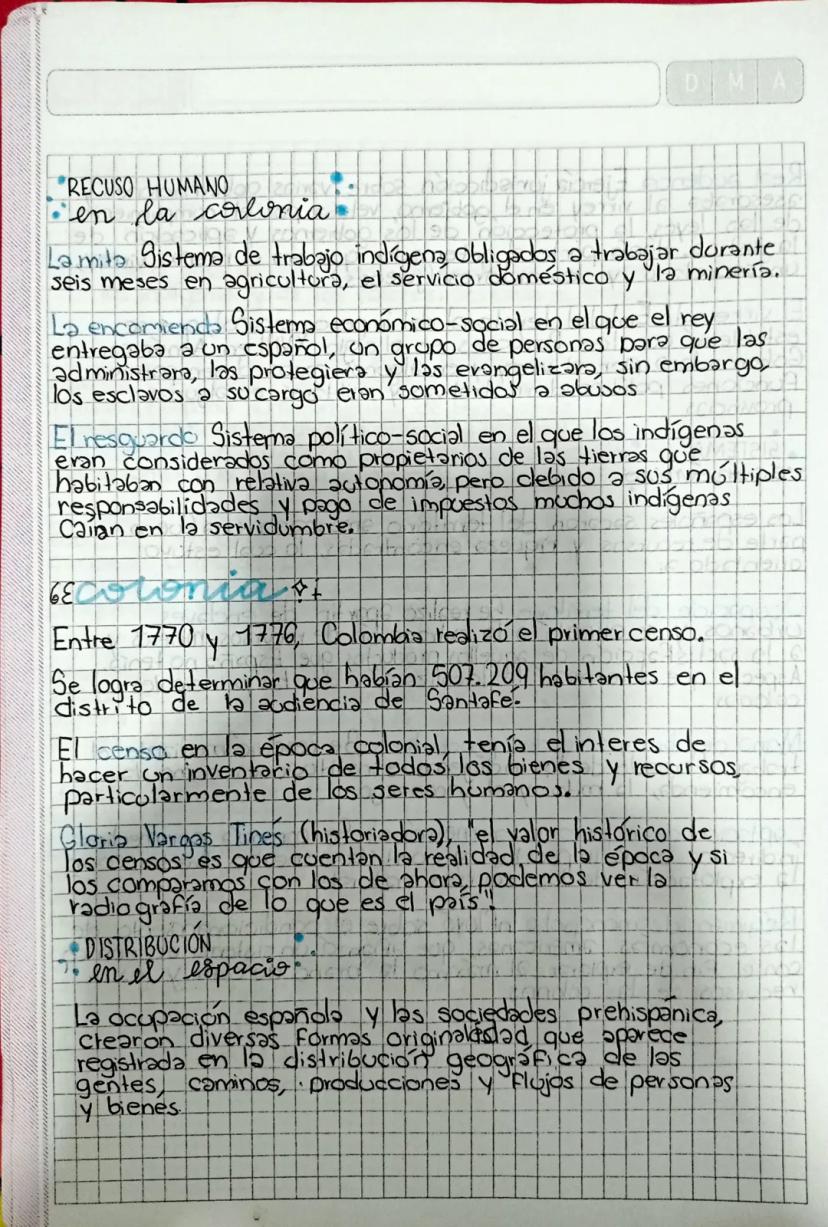 D M A
RECUSO HUMANO
en la colonia
La mita Sistema de trabajo indígena, obligados a trabajar durante
seis meses en agricultura, el servicio doméstico y la minería.
La encomienda Sistema económico-social en el que el rey
entregaba a un español, un grupo de personas para que las
administrara, las protegiera y las evangelizara, sin embargo
los esclavos a su cargo eran sometidos a abusos
El resguardo Sistema político-social en el que los indígenas
eran considerados como propietarios de las tierras que
habitaban con relativa autonomía, pero debido a sus múltiples
responsabilidades y pago de impuestos muchos indígenas
Caían en la servidumbre.
colonia
Entre 1770 y 1776, Colombia realizó el primer censo.
Se logra determinar que habían 507.209 habitantes en el
distrito de la audiencia de Santafé.
El censo en la época colonial, tenía el interes de
hacer un inventario de todos los bienes y recursos,
particularmente de los seres humanos.
Gloria Vargas Tines (historiadora), "el valor histórico de
los censos es que cuentan la realidad de la época y si
los comparamos con los de ahora, podemos ver la
radiografía de lo que es el país".
DISTRIBUCIÓN
en el espacio
La ocupación española y las sociedades prehispánica,
crearon diversas formas originalidad que aparece
registrada en la distribución geográfica de las
gentes, caminos, producciones y flujos de personas
y bienes